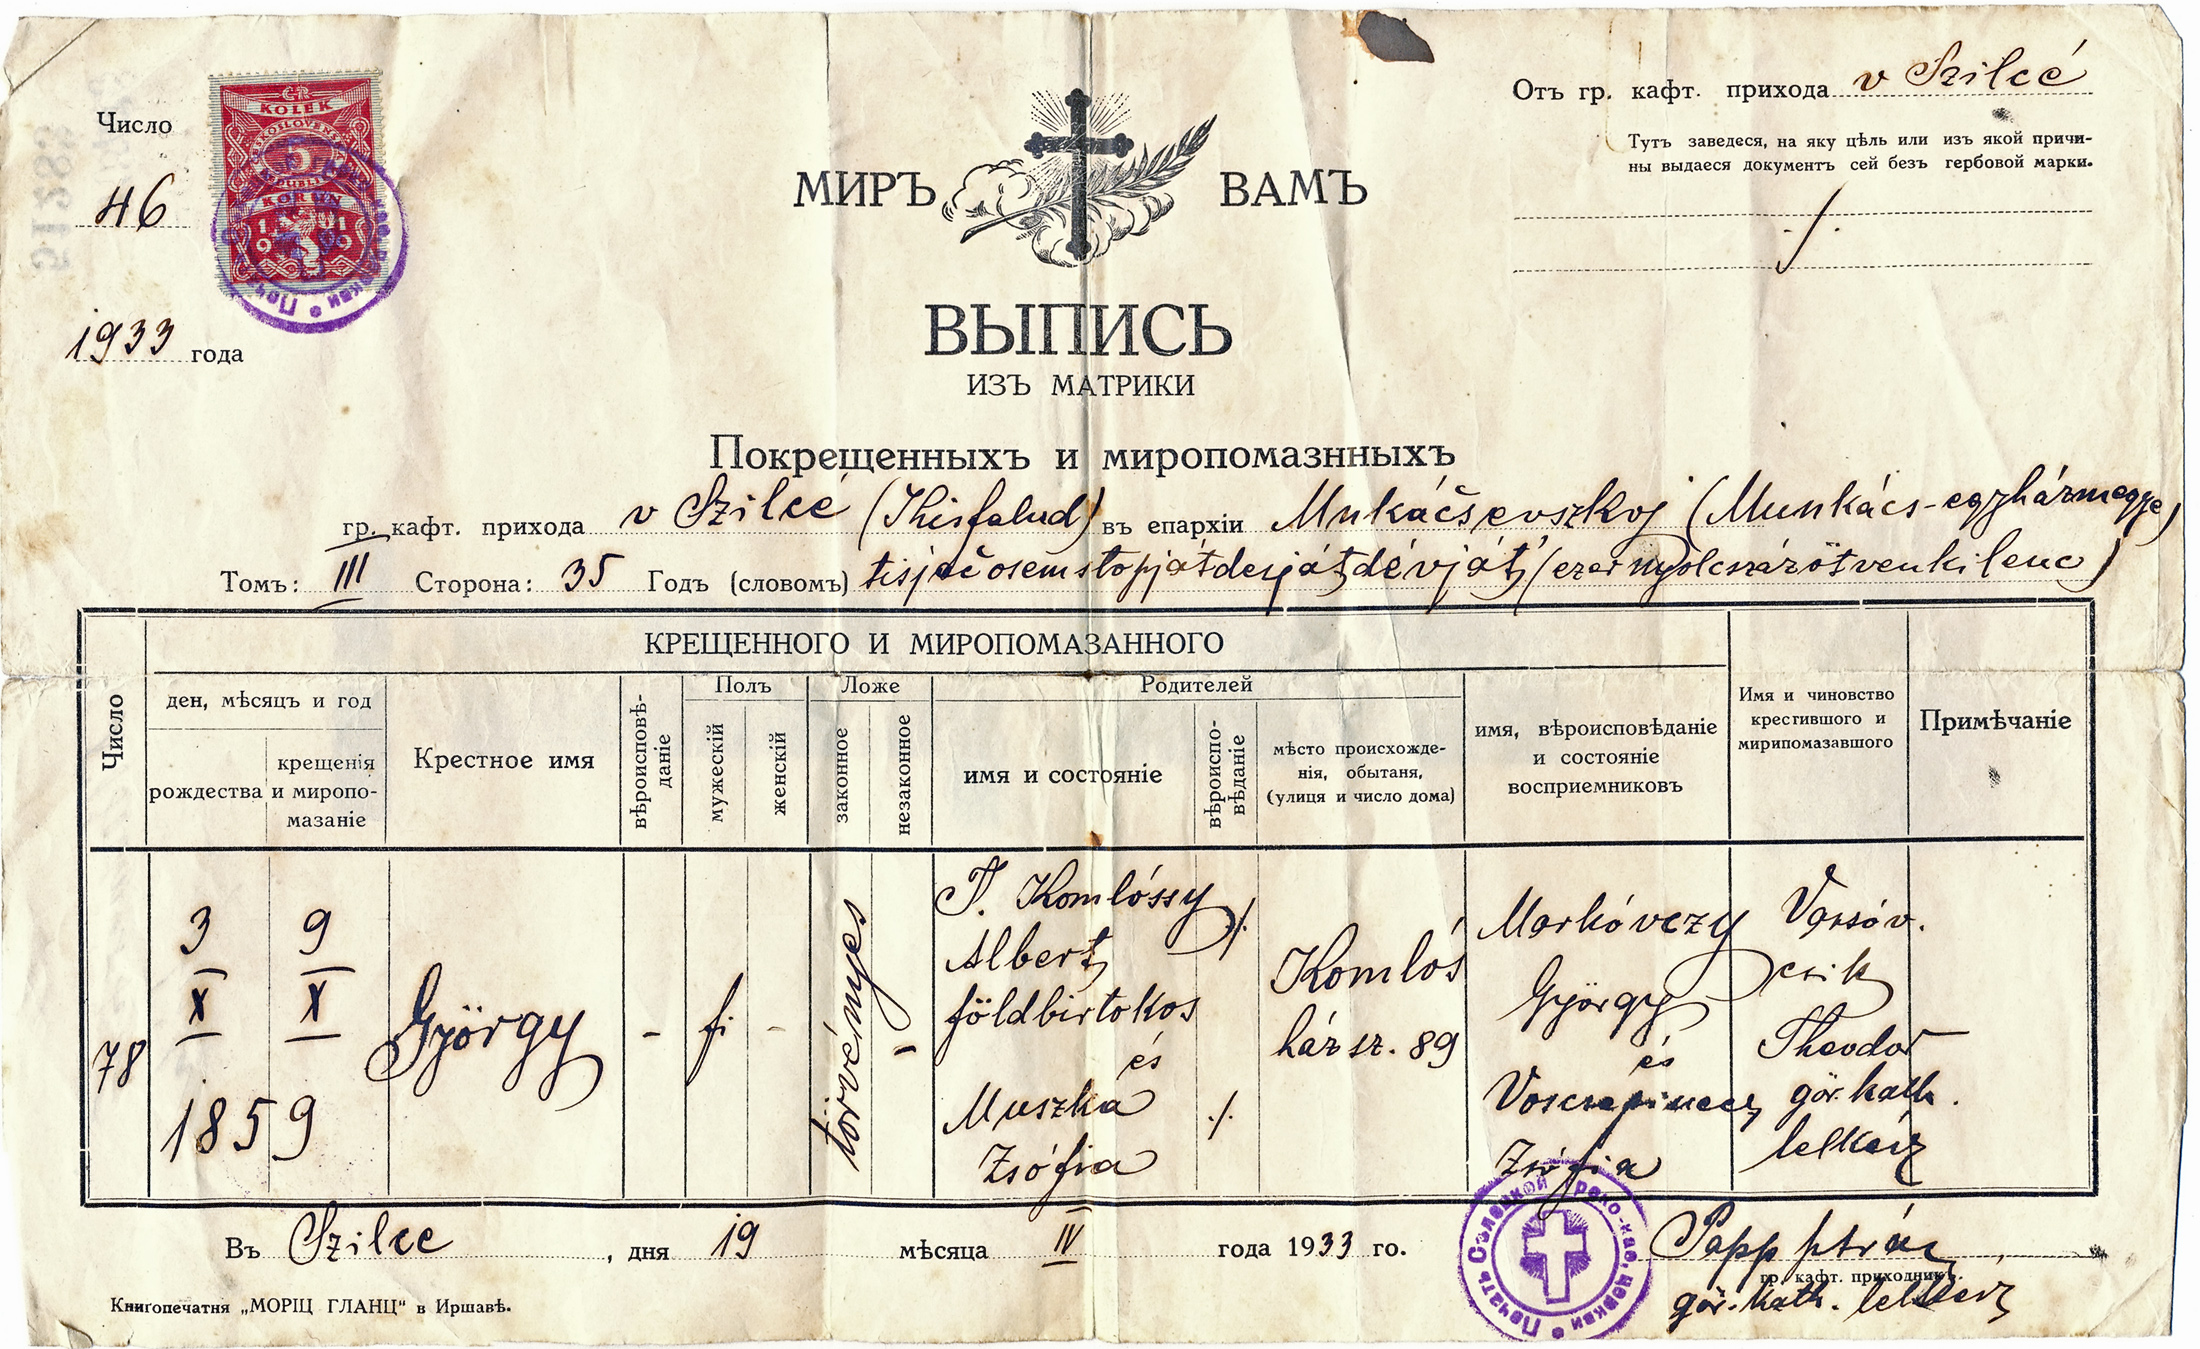 Число
46
1933 года
ČR
KOLEK
5
KORUN
1919
МИРЪ ВАМЪ
Отъ гр. кафт. прихода v Szilcé
Тутъ заведеся, на яку цѣль или изъ якой причи-
ны выдаеся документъ сей безъ гербовой марки.
./.
ВЫПИСЬ
ИЗЪ МАТРИКИ
Покрещенныхъ и миропомазнныхъ
гр. кафт. прихода v Szilcé (Kisfalud) въ епархіи Mukáčsevszkoj (Munkács-egyházmegye)
Томъ: III Сторона: 35 Годъ (словомъ) tisjačosemstopjátdesjátdévját (ezernyolcszázötvenkilenc)
КРЕЩЕННОГО И МИРОПОМАЗАННОГО
Число
ден, мѣсяцъ и год
рождества
крещенія
и миропо-
мазаніе
Крестное имя
вѣроисповѣ-
даніе
Полъ
мужескій
женскій
Ложе
законное
незаконное
Родителей
имя и состояніе
вѣроиспо-
вѣданіе
мѣсто происхожде-
нія, обытаня,
(улиця и число дома)
имя, вѣроисповѣданіе
и состояніе
восприемниковъ
Имя и чиновство
крестившого и
мирипомазавшого
Примѣчаніе
78
3
X
9
X
1859
György
-
fi
-
törvényes
-
T. Komlóssy
Albert
földbirtokos
és
Muszka
Zsófia
./.
./.
Komlós
ház sz. 89
Markóvczy
György
és
Zsófia
Varsóv.
csik
Theodor
gör. kath.
lelkész
Въ Szilce, дня 19 мѣсяца IV года 1933 го.
Papp
гр. кафт. приходникъ.
gör. kath. lelkész
Книгопечатня „МОРІЦ ГЛАНЦ" в Иршавѣ.